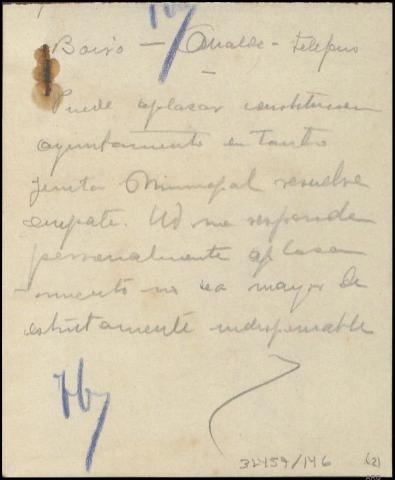 Boiro — Alcalde - telefono
Puede aplazar constitucion
ayuntamiento en tanto
junta Municipal resuelve
empate. Ud me responde
personalmente aplaza
miento no sea mayor de
estrictamente indispensable
32459/146 (2)